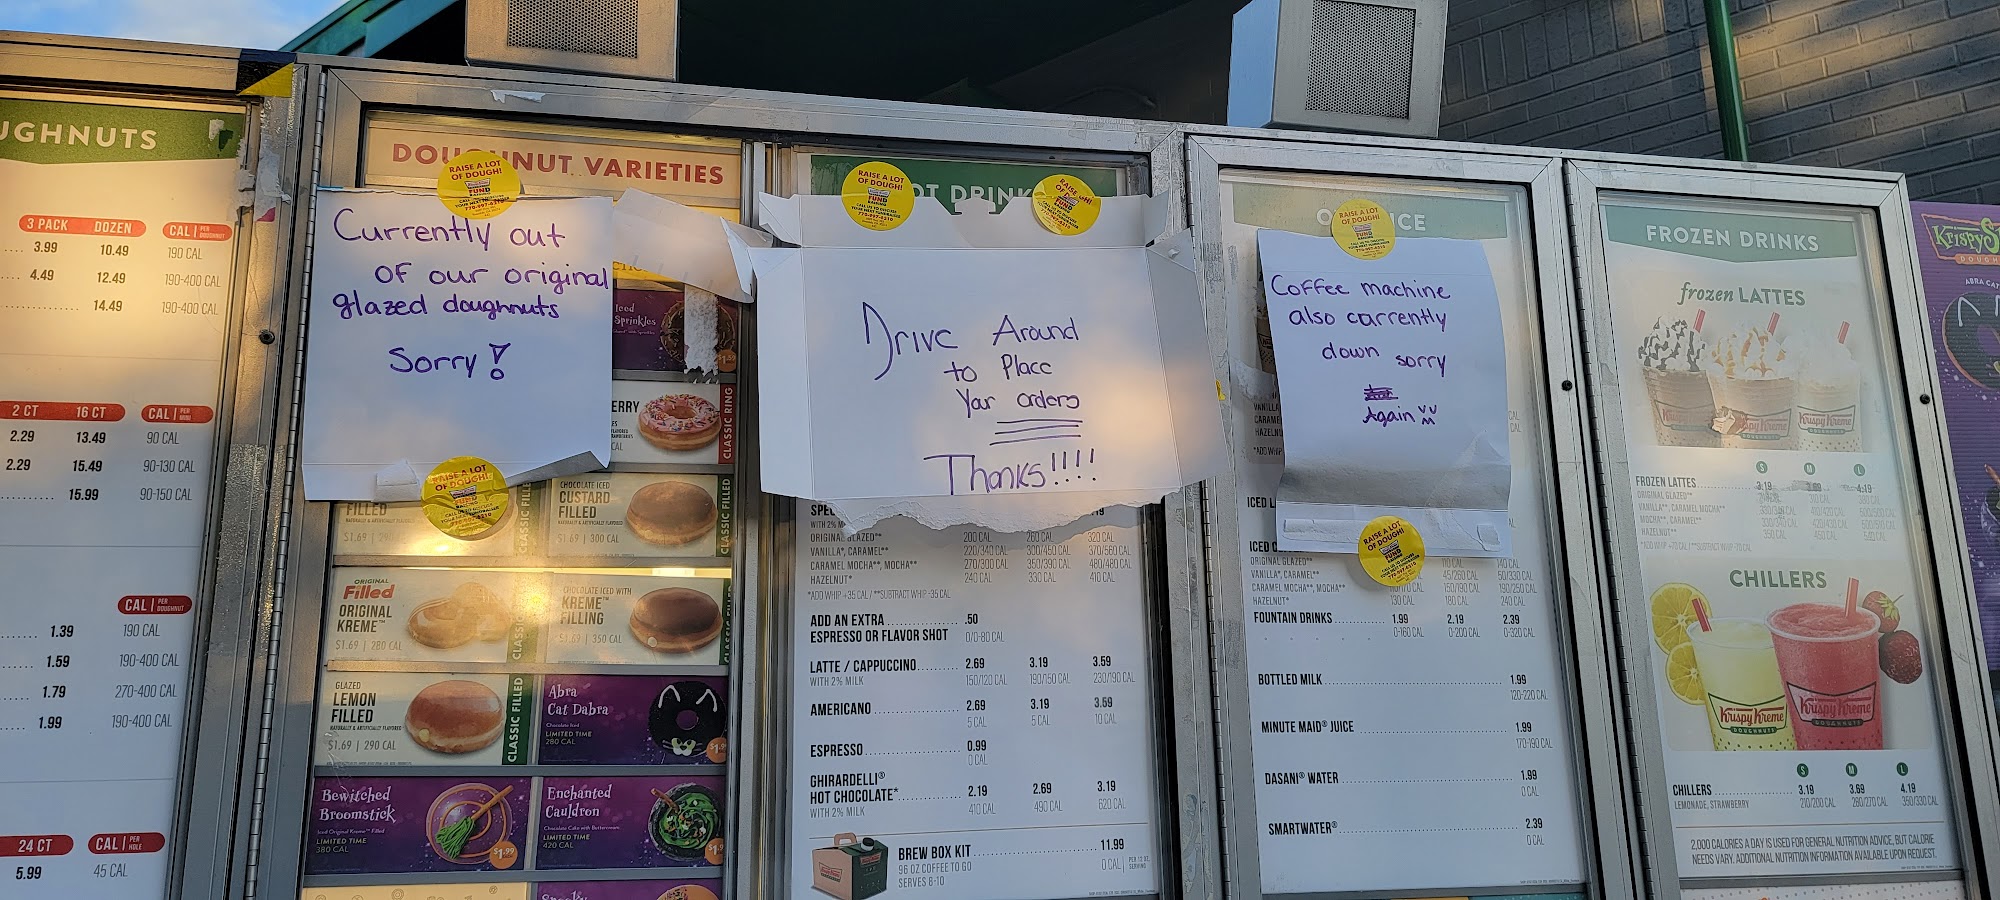 UGHNUTS
3 PACK DOZEN CAL | PER DOUGHNUT
3.99 10.49 190 CAL
4.49 12.49 190-400 CAL
14.49 190-400 CAL
2 CT 16 CT CAL | PER MINI
2.29 13.49 90 CAL
2.29 15.49 90-130 CAL
15.99 90-150 CAL
CAL | PER DOUGHNUT
1.39 190 CAL
1.59 190-400 CAL
1.79 270-400 CAL
1.99 190-400 CAL
24 CT CAL | PER HOLE
5.99 45 CAL
DOUGHNUT VARIETIES
RAISE A LOT
OF DOUGH!
FUND
Currently out
of our original
glazed doughnuts
Sorry!
RAISE A LOT
OF DOUGH!
FUND
Iced
Sprinkles
$1.59
ERRY
CLASSIC RING
FILLED
$1.69 | 290
CLASSIC FILLED
CHOCOLATE ICED
CUSTARD
FILLED
NATURALLY & ARTIFICIALLY FLAVORED
$1.69 | 300 CAL
CLASSIC FILLED
ORIGINAL
Filled
ORIGINAL
KREME™
$1.69 | 280 CAL
CLASSIC FILLED
CHOCOLATE ICED WITH
KREME™
FILLING
$1.69 | 350 CAL
GLAZED
LEMON
FILLED
NATURALLY & ARTIFICIALLY FLAVORED
$1.69 | 290 CAL
CLASSIC FILLED
Abra
Cat Dabra
Chocolate Iced
LIMITED TIME
280 CAL
Bewitched
Broomstick
Iced Original Kreme™ Filled
LIMITED TIME
380 CAL
$1.99
Enchanted
Cauldron
Chocolate Cake with Buttercream
LIMITED TIME
420 CAL
OT DRINK
RAISE A LOT
OF DOUGH!
FUND
CALL US TO DISCUSS
YOUR NEXT FUNDRAISER
770-997-6210
Drive Around
to Place
Your orders
Thanks!!!!
ORIGINAL GLAZED** 200 CAL 260 CAL 320 CAL
VANILLA*, CARAMEL** 220/340 CAL 300/450 CAL 370/560 CAL
CARAMEL MOCHA**, MOCHA** 270/300 CAL 350/390 CAL 480/460 CAL
HAZELNUT* 240 CAL 330 CAL 410 CAL
*ADD WHIP +35 CAL / **SUBTRACT WHIP -35 CAL
ADD AN EXTRA .50
ESPRESSO OR FLAVOR SHOT 0/0-80 CAL
LATTE / CAPPUCCINO 2.69 3.19 3.59
WITH 2% MILK 150/120 CAL 190/150 CAL 230/190 CAL
AMERICANO 2.69 3.19 3.59
5 CAL 5 CAL 10 CAL
ESPRESSO 0.99
0 CAL
GHIRARDELLI®
HOT CHOCOLATE* 2.19 2.69 3.19
WITH 2% MILK 410 CAL 490 CAL 620 CAL
BREW BOX KIT 11.99
96 OZ COFFEE TO GO 0 CAL | PER 12 OZ. SERVING
SERVES 8-10
RAISE A LOT
OF DOUGH!
FUND
Coffee machine
also currently
down sorry
Again
RAISE A LOT
OF DOUGH!
FUND
ICED L
ICED C
ORIGINAL GLAZED**
VANILLA*, CARAMEL** 45/260 CAL 50/330 CAL
CARAMEL MOCHA**, MOCHA** 150/190 CAL 190/250 CAL
HAZELNUT* 130 CAL 180 CAL 240 CAL
FOUNTAIN DRINKS 1.99 2.19 2.39
0-160 CAL 0-200 CAL 0-320 CAL
BOTTLED MILK 1.99
120-220 CAL
MINUTE MAID® JUICE 1.99
170-190 CAL
DASANI® WATER 1.99
0 CAL
SMARTWATER® 2.39
0 CAL
FROZEN DRINKS
frozen LATTES
Krispy Kreme
Krispy Kreme
S M L
FROZEN LATTES 3.19 3.99 4.19
ORIGINAL GLAZED**
VANILLA**, CARAMEL MOCHA**
MOCHA**, CARAMEL*
HAZELNUT*
CHILLERS
Krispy Kreme
DOUGHNUTS
Krispy Kreme
DOUGHNUTS
S M L
CHILLERS 3.19 3.69 4.19
LEMONADE, STRAWBERRY 210/200 CAL 280/270 CAL 350/330 CAL
2,000 CALORIES A DAY IS USED FOR GENERAL NUTRITION ADVICE, BUT CALORIE
NEEDS VARY. ADDITIONAL NUTRITION INFORMATION AVAILABLE UPON REQUEST.
Krispy
DOUGH
ABRA CAT